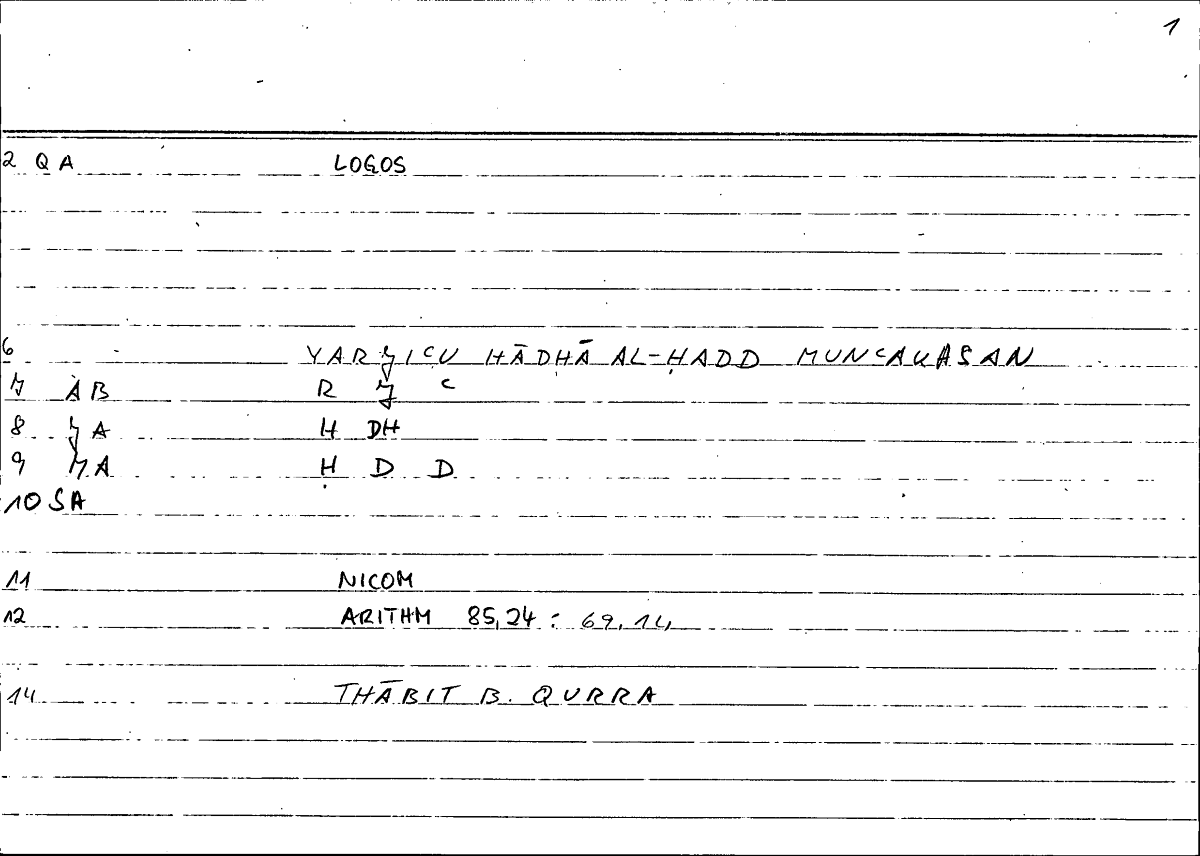 1
2 QA LOGOS
6 YARǦIʿU HĀDHĀ AL-ḤADD MUNʿAKASAN
7 AB R Ǧ ʿ
8 ǦA H DH
9 MA Ḥ D D
10 SA
11 NICOM
12 ARITHM 85,24 : 69,14
14 THĀBIT B. QURRA